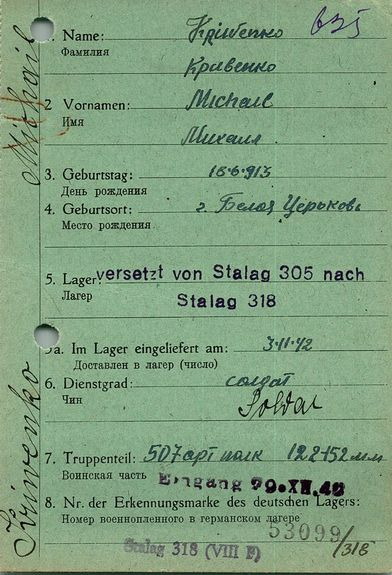 635
1. Name: Kriwenko
Фамилия
Кривенко
2 Vornamen: Michael
Имя
Михаил
3. Geburtstag: 18.6.913
День рождения
4. Geburtsort: г. Белая Церьковь
Место рождения
5. Lager: versetzt von Stalag 305 nach
Лагер
Stalag 318
5a. Im Lager eingeliefert am: 3.11.42
Доставлен в лагер (число)
6. Dienstgrad: солдат
Чин
Soldat
7. Truppenteil: 507 арт полк 122-152 мм
Воинская часть
Eingang
8. Nr. der Erkennungsmarke des deutschen Lagers:
Номер военнопленного в германском лагере
53099/318
Stalag 318 (VIII F)
Kriwenko
Michail